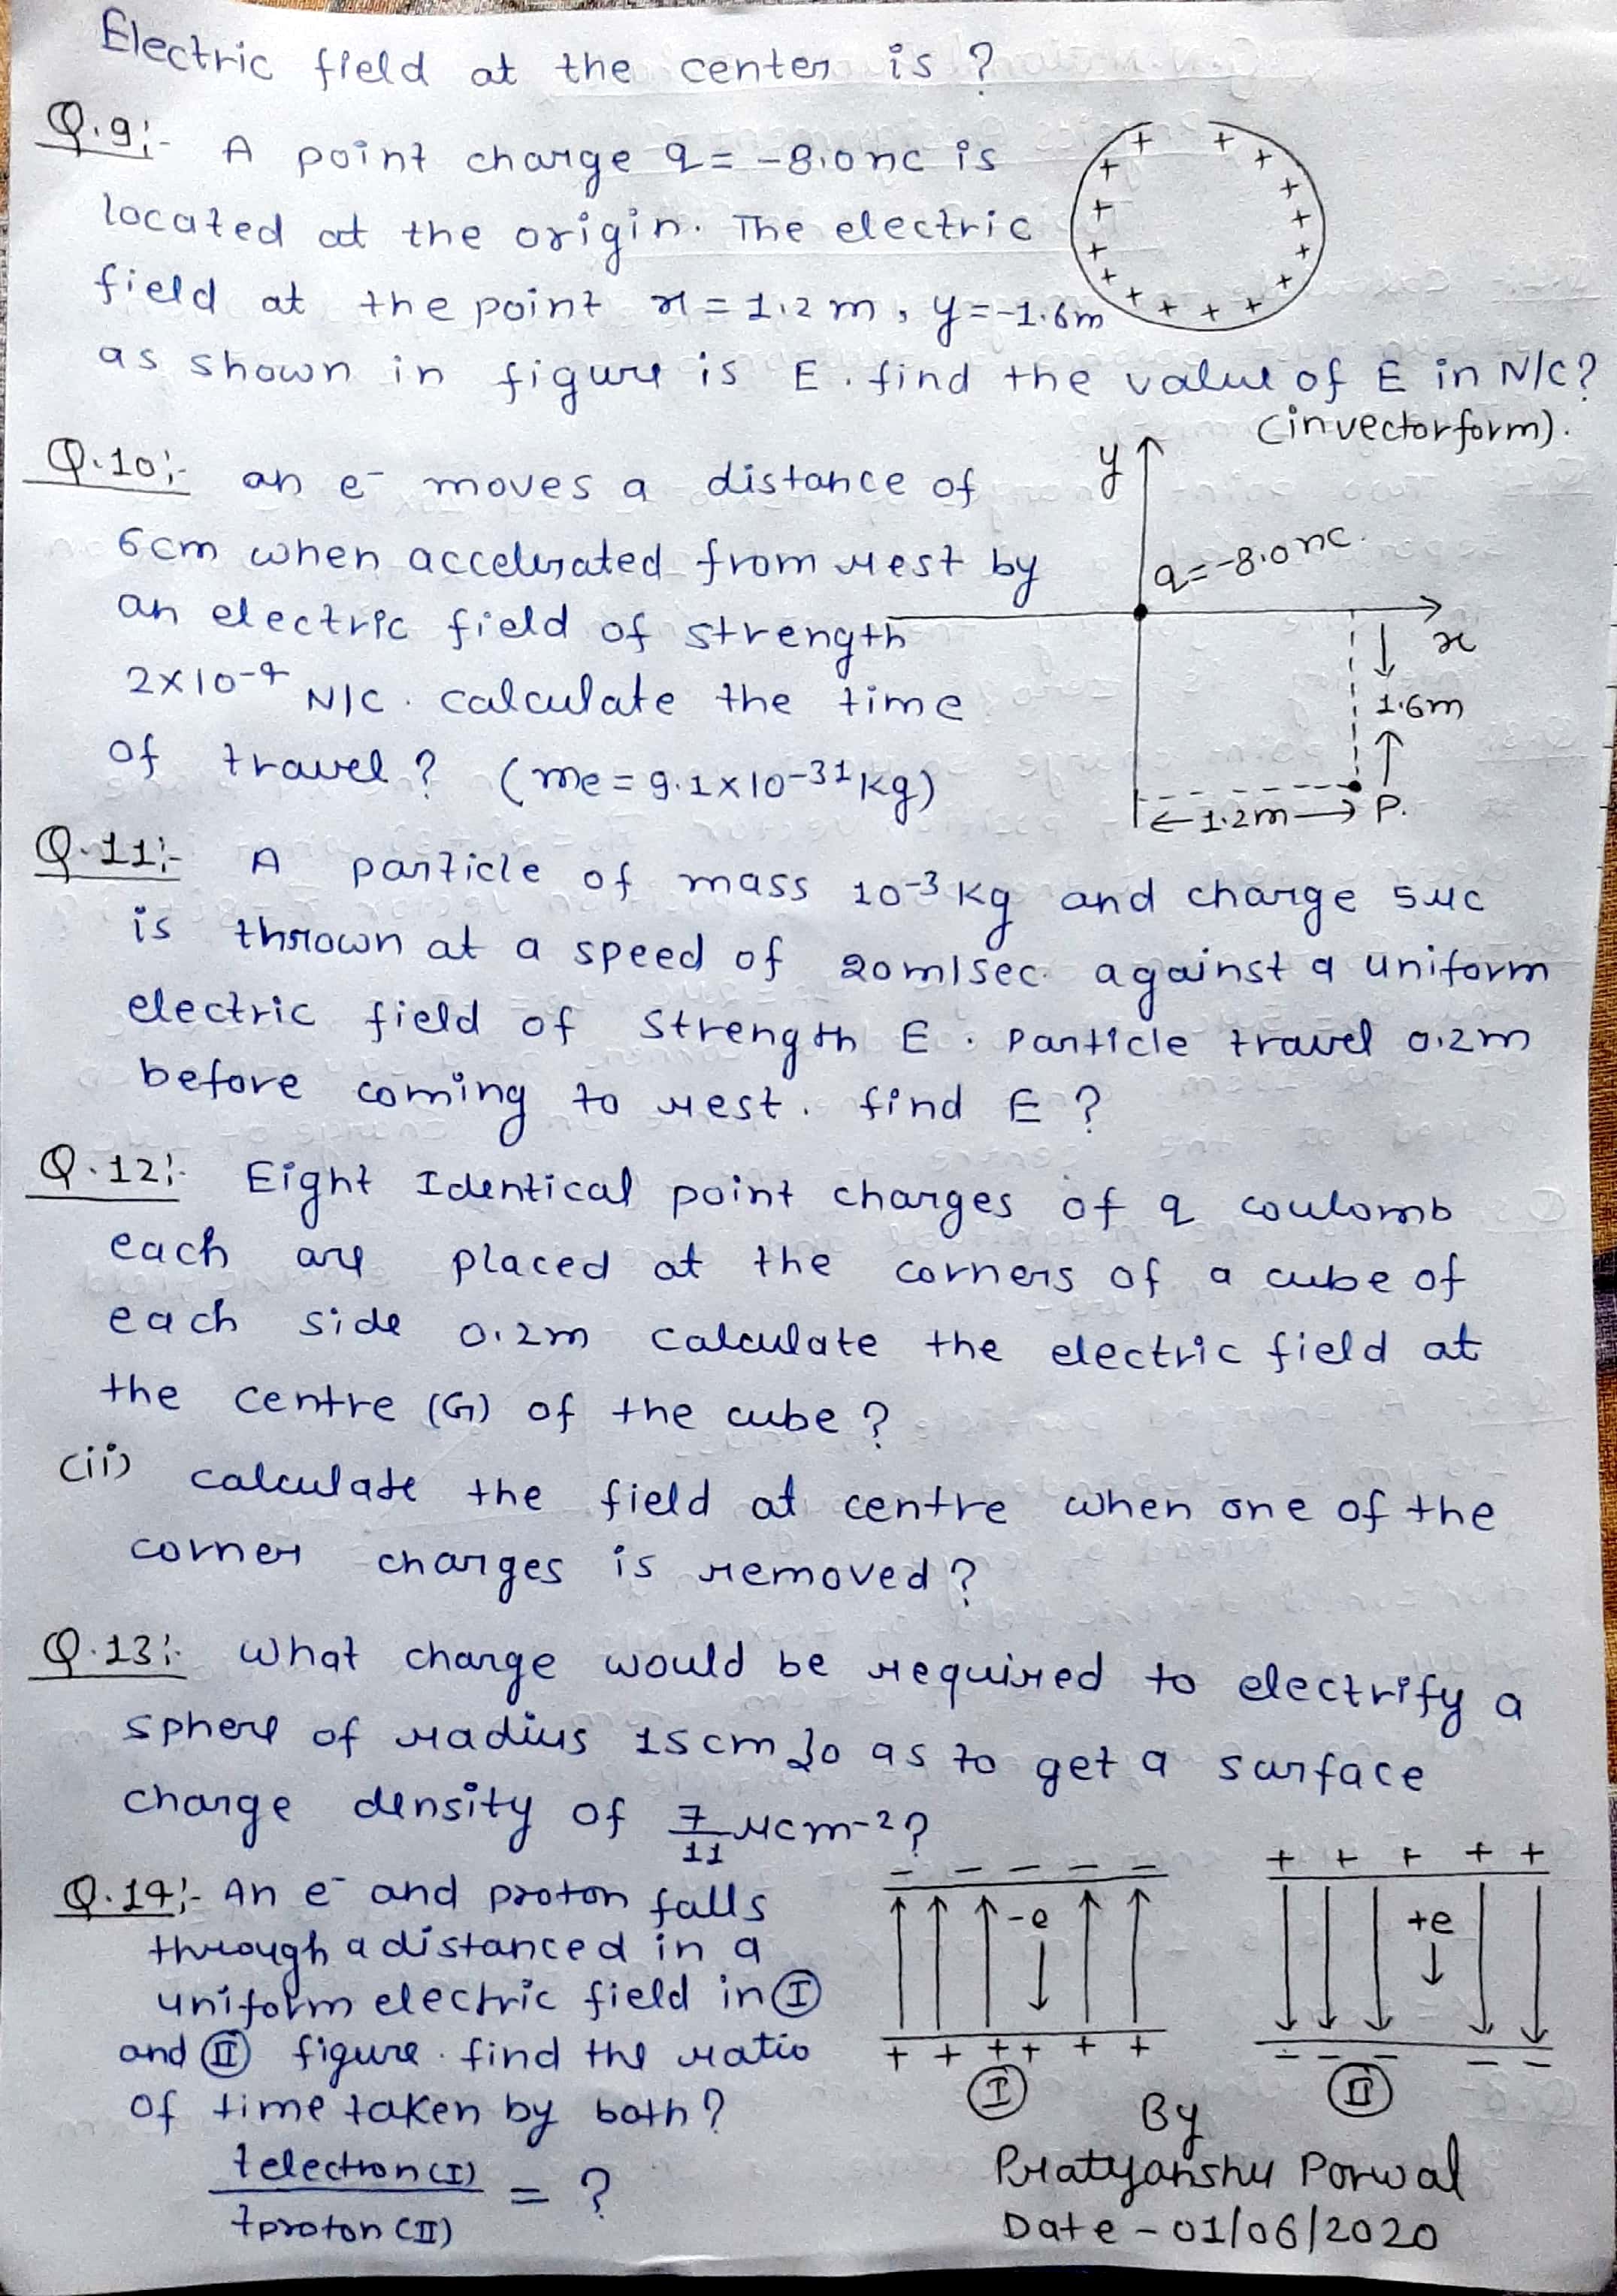 Electric field at the center is ?
Q.9:- A point charge q = -8.0nc is
located at the origin. The electric
field at the point x = 1.2 m, y = -1.6m
as shown in figure is E. find the value of E in N/C?
(in vector form).
Q.10:- an e⁻ moves a distance of
6cm when accelerated from rest by
an electric field of strength
2×10⁻⁴ N/C. calculate the time
of travel? (me = 9.1×10⁻³¹kg)
y
q=-8.0nc.
x
1.6m
←1.2m→ P.
Q.11:- A particle of mass 10⁻³kg and charge 5μc
is thrown at a speed of 20m/sec. against a uniform
electric field of strength E. Particle travel 0.2m
before coming to rest. find E ?
Q.12:- Eight Identical point charges of q coulomb
each are placed at the corners of a cube of
each side 0.2m calculate the electric field at
the centre (G) of the cube ?
(ii) calculate the field at centre when one of the
corner charges is removed ?
Q.13:- What charge would be required to electrify a
sphere of radius 15cm so as to get a surface
charge density of 7/11 μcm⁻² ?
Q.14:- An e⁻ and proton falls
through a distance d in a
uniform electric field in Ⓘ
and Ⓘ Ⓘ figure. find the ratio
of time taken by both ?
t electron (I) / t proton (II) = ?
- - - - -
-e
+ + + + + +
Ⓘ
+ + + + +
+e
- - - - -
Ⓘ Ⓘ
By
Pratyanshu Porwal
Date - 01/06/2020